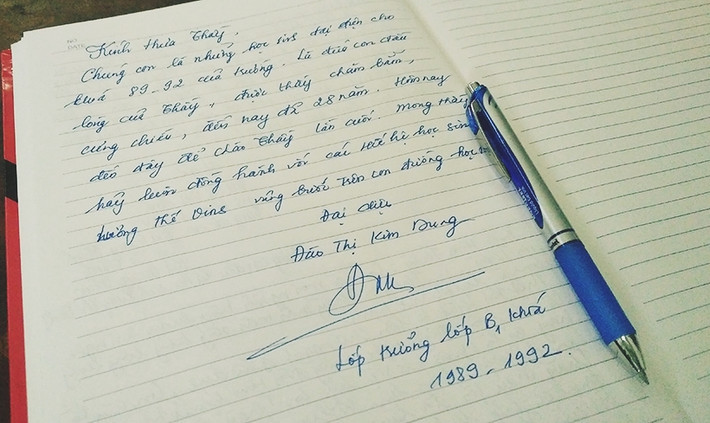 NO.
DATE
Kính thưa Thầy,
Chúng con là những học sinh đại diện cho
khoá 89-92 của trường. Là đứa con đầu
lòng của Thầy, được thầy chăm bẵm,
cưng chiều, đến nay đã 28 năm. Hôm nay
đến đây để chào Thầy lần cuối. Mong thầy
hãy luôn đồng hành với các thế hệ học sinh
Lương thế Vinh vững bước trên con đường học
Đại diện
Đào Thị Kim Dung
Lớp trưởng lớp B1 khoá
1989-1992.